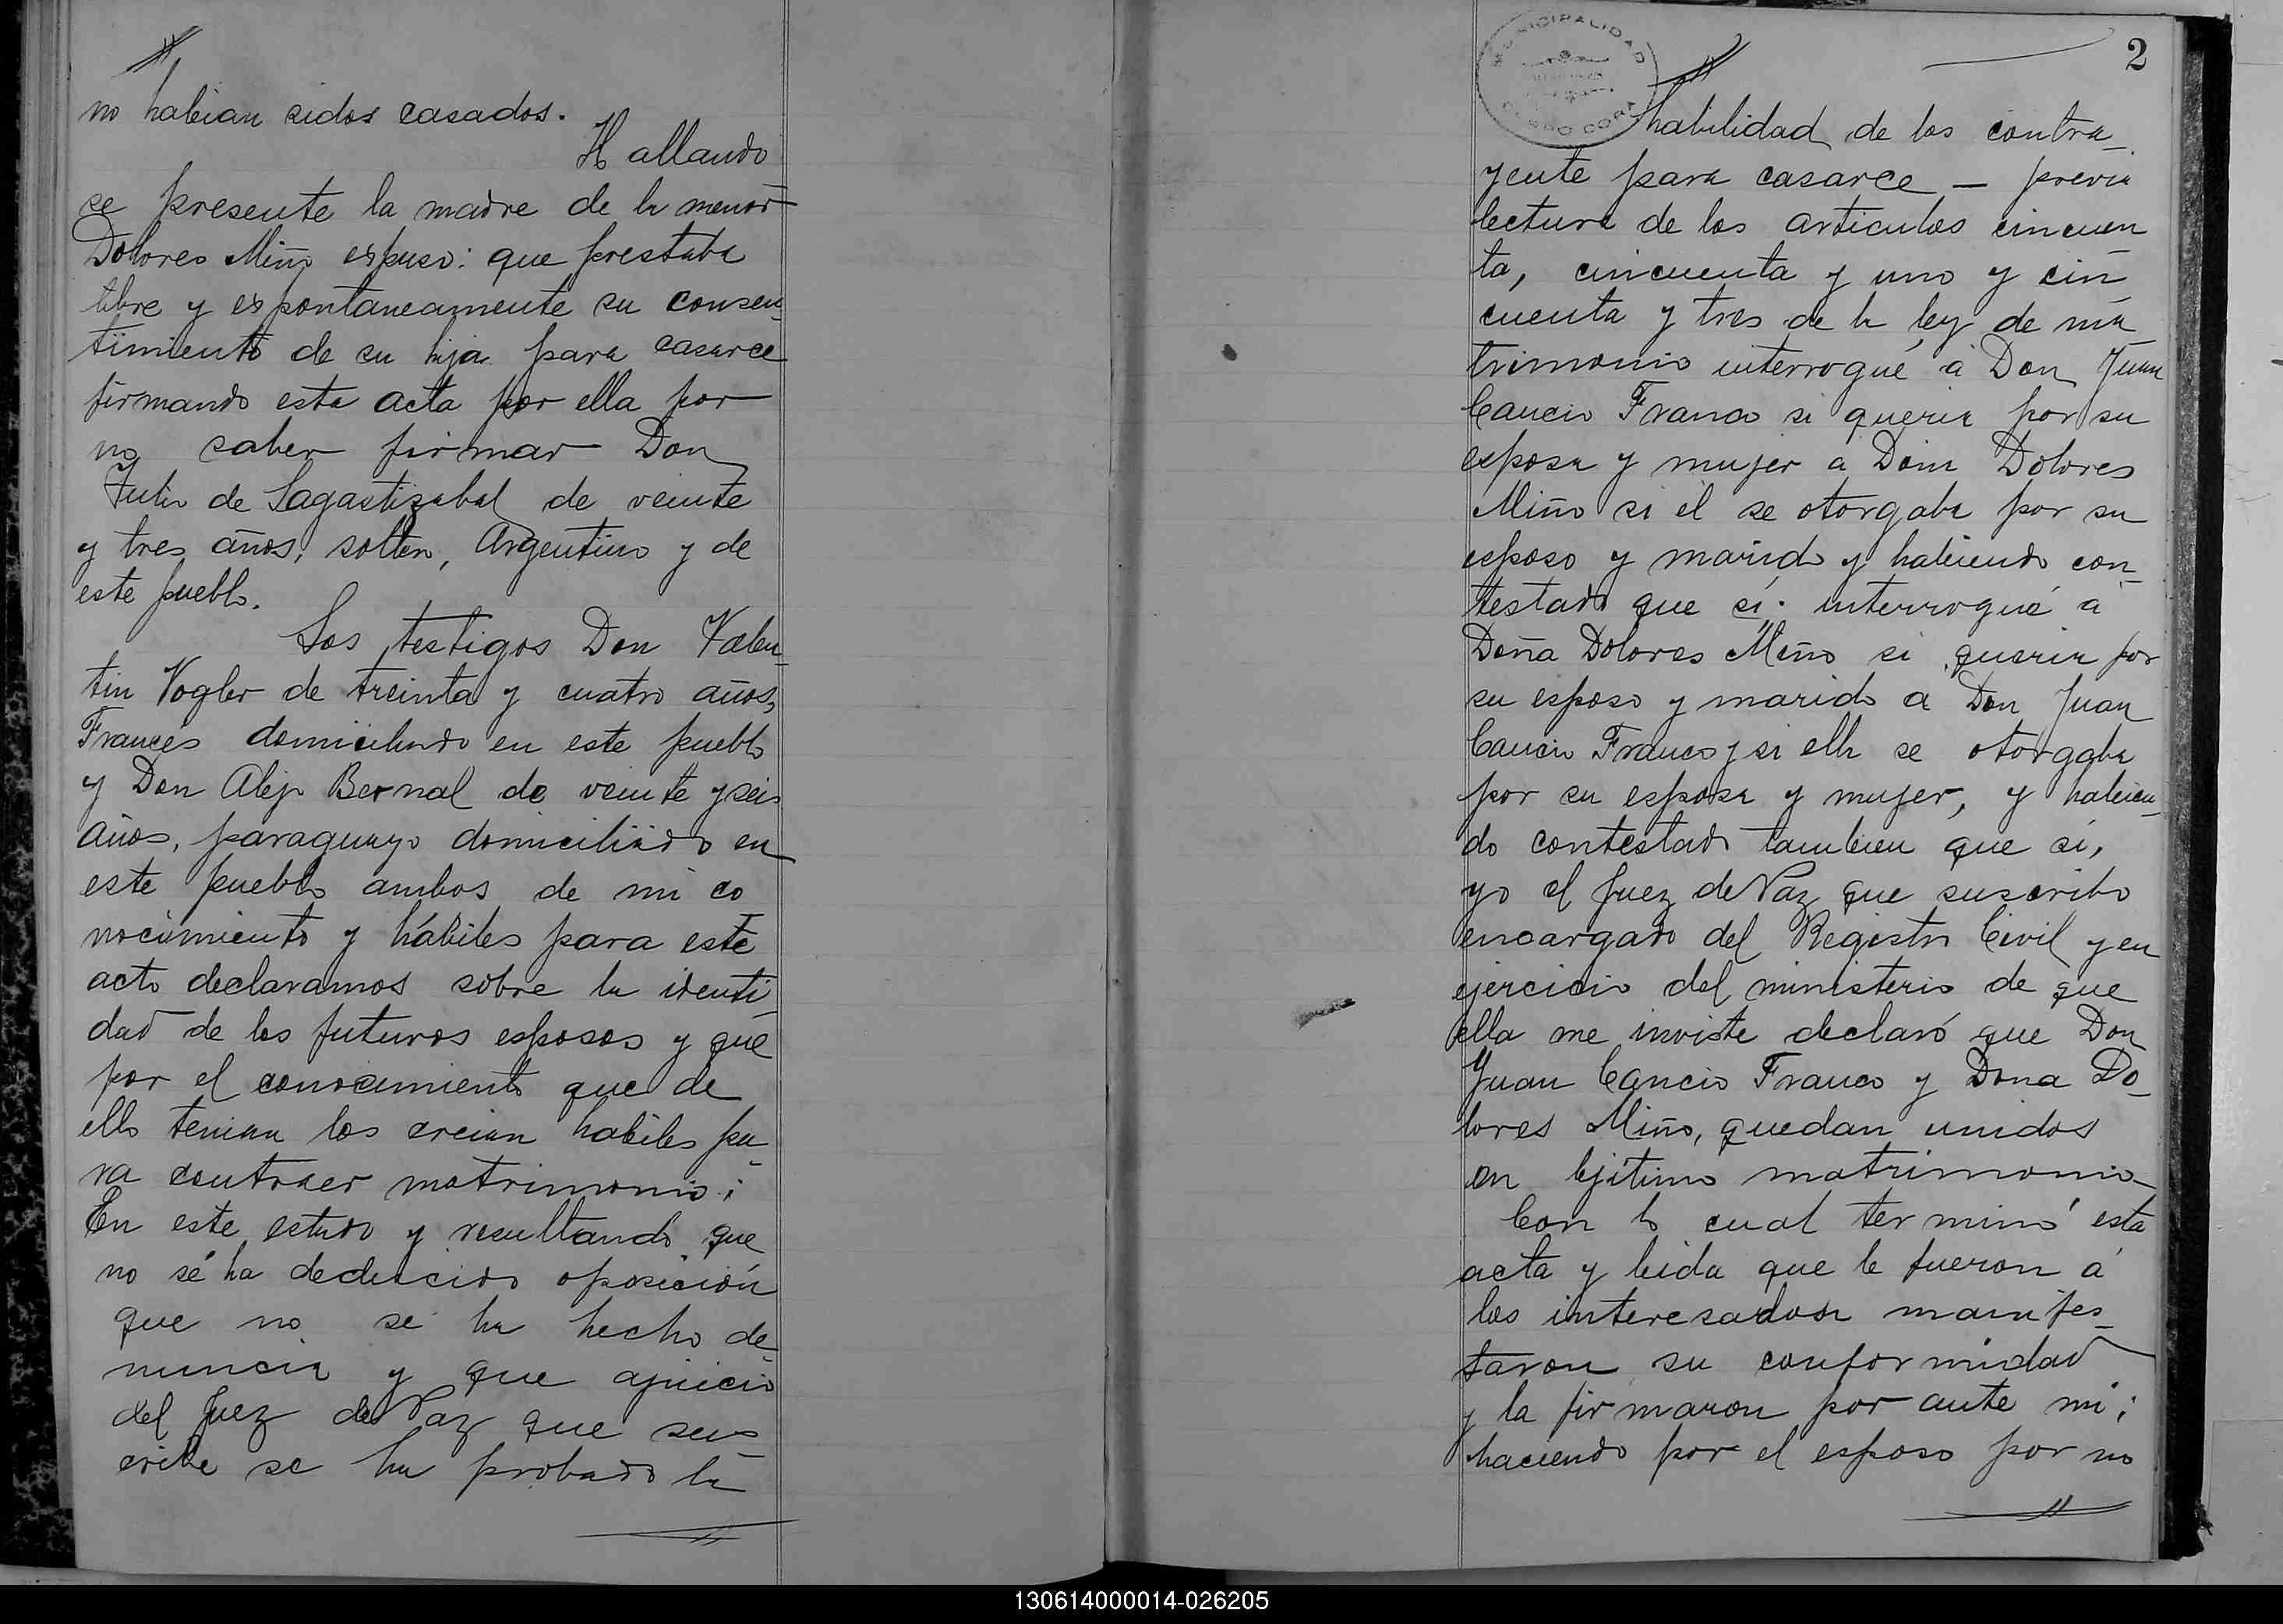 no habian sidos casados.
Hallando
se presente la madre de la menor
Dolores Miño espuso: que prestaba
libre y espontaneamente su consen-
timiento de su hija para casarce
firmando esta acta por ella por
no saber firmar Don
Julio de Sagastizabal de veinte
y tres años, soltero, Argentino y de
este pueblo.
Los testigos Don Valen-
tin Vogler de treinta y cuatro años,
Frances domiciliado en este pueblo
y Don Alejo Bernal de veinte y seis
años, paraguayo domiciliado en
este pueblo ambos de mi co
nocimiento y hábiles para este
acto declaramos sobre la identi-
dad de los futuros esposos y que
por el conocimiento que de
ello tenian los creian habiles pa-
ra contraer matrimonio;
En este estado y resultando que
no sé ha deducido oposición
que no se ha hecho de-
nuncia y que ajuicio
del Juez de Paz que sus-
cribe se ha probado la
2
MUNICIPALIDAD
CERRO CORA
habilidad de los contra-
yente para casarce — previa
lectura de los articulos cincuen
ta, cincuenta y uno y cin-
cuenta y tres de la ley de ma-
trimonio interrogué á Don Juan
Cancio Franco si queria por su
esposa y mujer a Doña Dolores
Miño si él se otorgaba por su
esposo y marido y habiendo con-
testado que sí. interrogué á
Doña Dolores Miño si queria por
su esposo y marido a Don Juan
Cancio Franco y si ella se otorgaba
por su esposa y mujer, y habien-
do contestado tambien que sí,
yo el Juez de Paz que suscribo
encargado del Registro Civil y en
ejercicio del ministerio de que
ella me inviste declaró que Don
Juan Cancio Franco y Dona Do-
lores Miño, quedan unidos
en lejitimo matrimonio
Con lo cual terminó esta
acta y leida que le fueron á
los interesados manifes-
taron su conformidad
y la firmaron por ante mi;
haciendo por el esposo por no
130614000014-026205